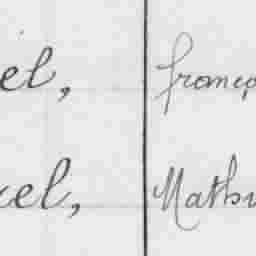 el, franço
el, Mathu